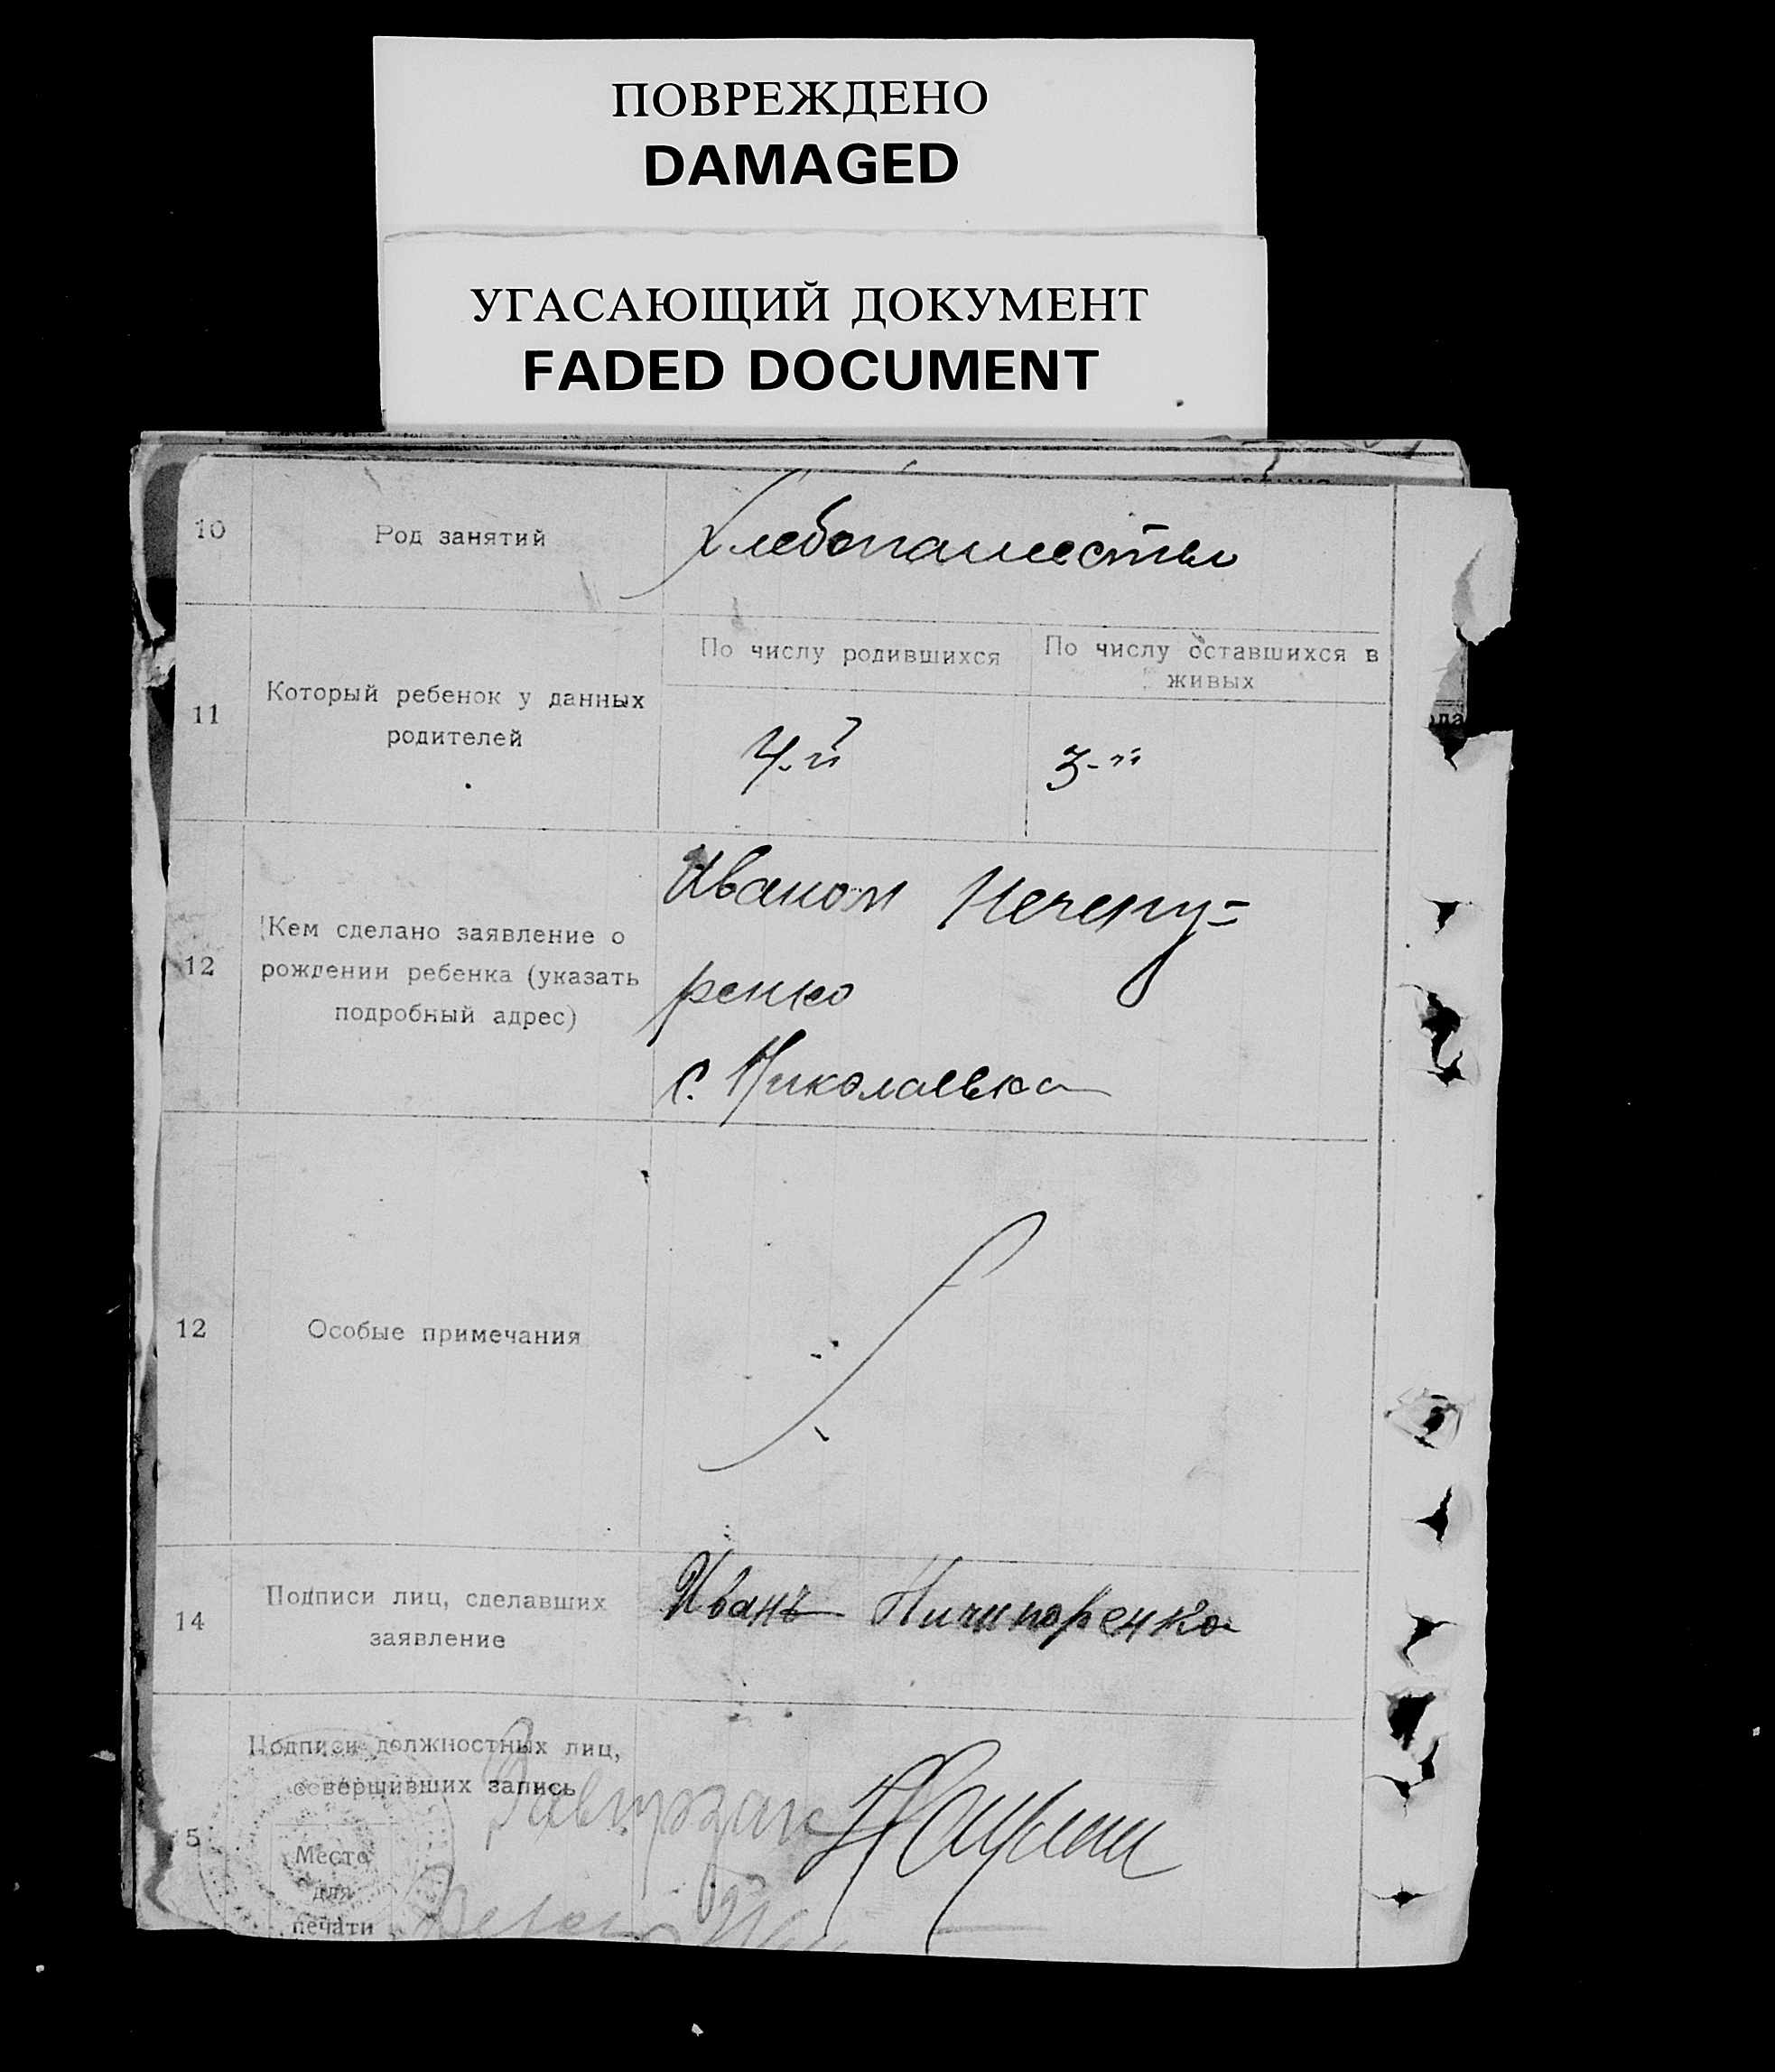 ПОВРЕЖДЕНО
DAMAGED
УГАСАЮЩИЙ ДОКУМЕНТ
FADED DOCUMENT
10 Род занятий Хлебопашество
11 Который ребенок у данных родителей
По числу родившихся По числу оставшихся в живых
4-й 3-й
12 Кем сделано заявление о
рождении ребенка (указать
подробный адрес)
Иваном
ренко
с. Николаевка
12 Особые примечания
14 Подписи лиц, сделавших
заявление
Иванъ Ничипоренко
15 Подписи должностных лиц,
совершивших запись
Место
для
печати